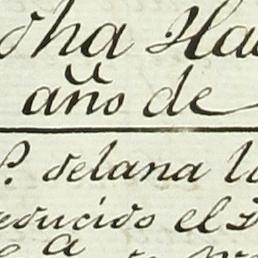 dha Ha
año de
P. delana l
educido el